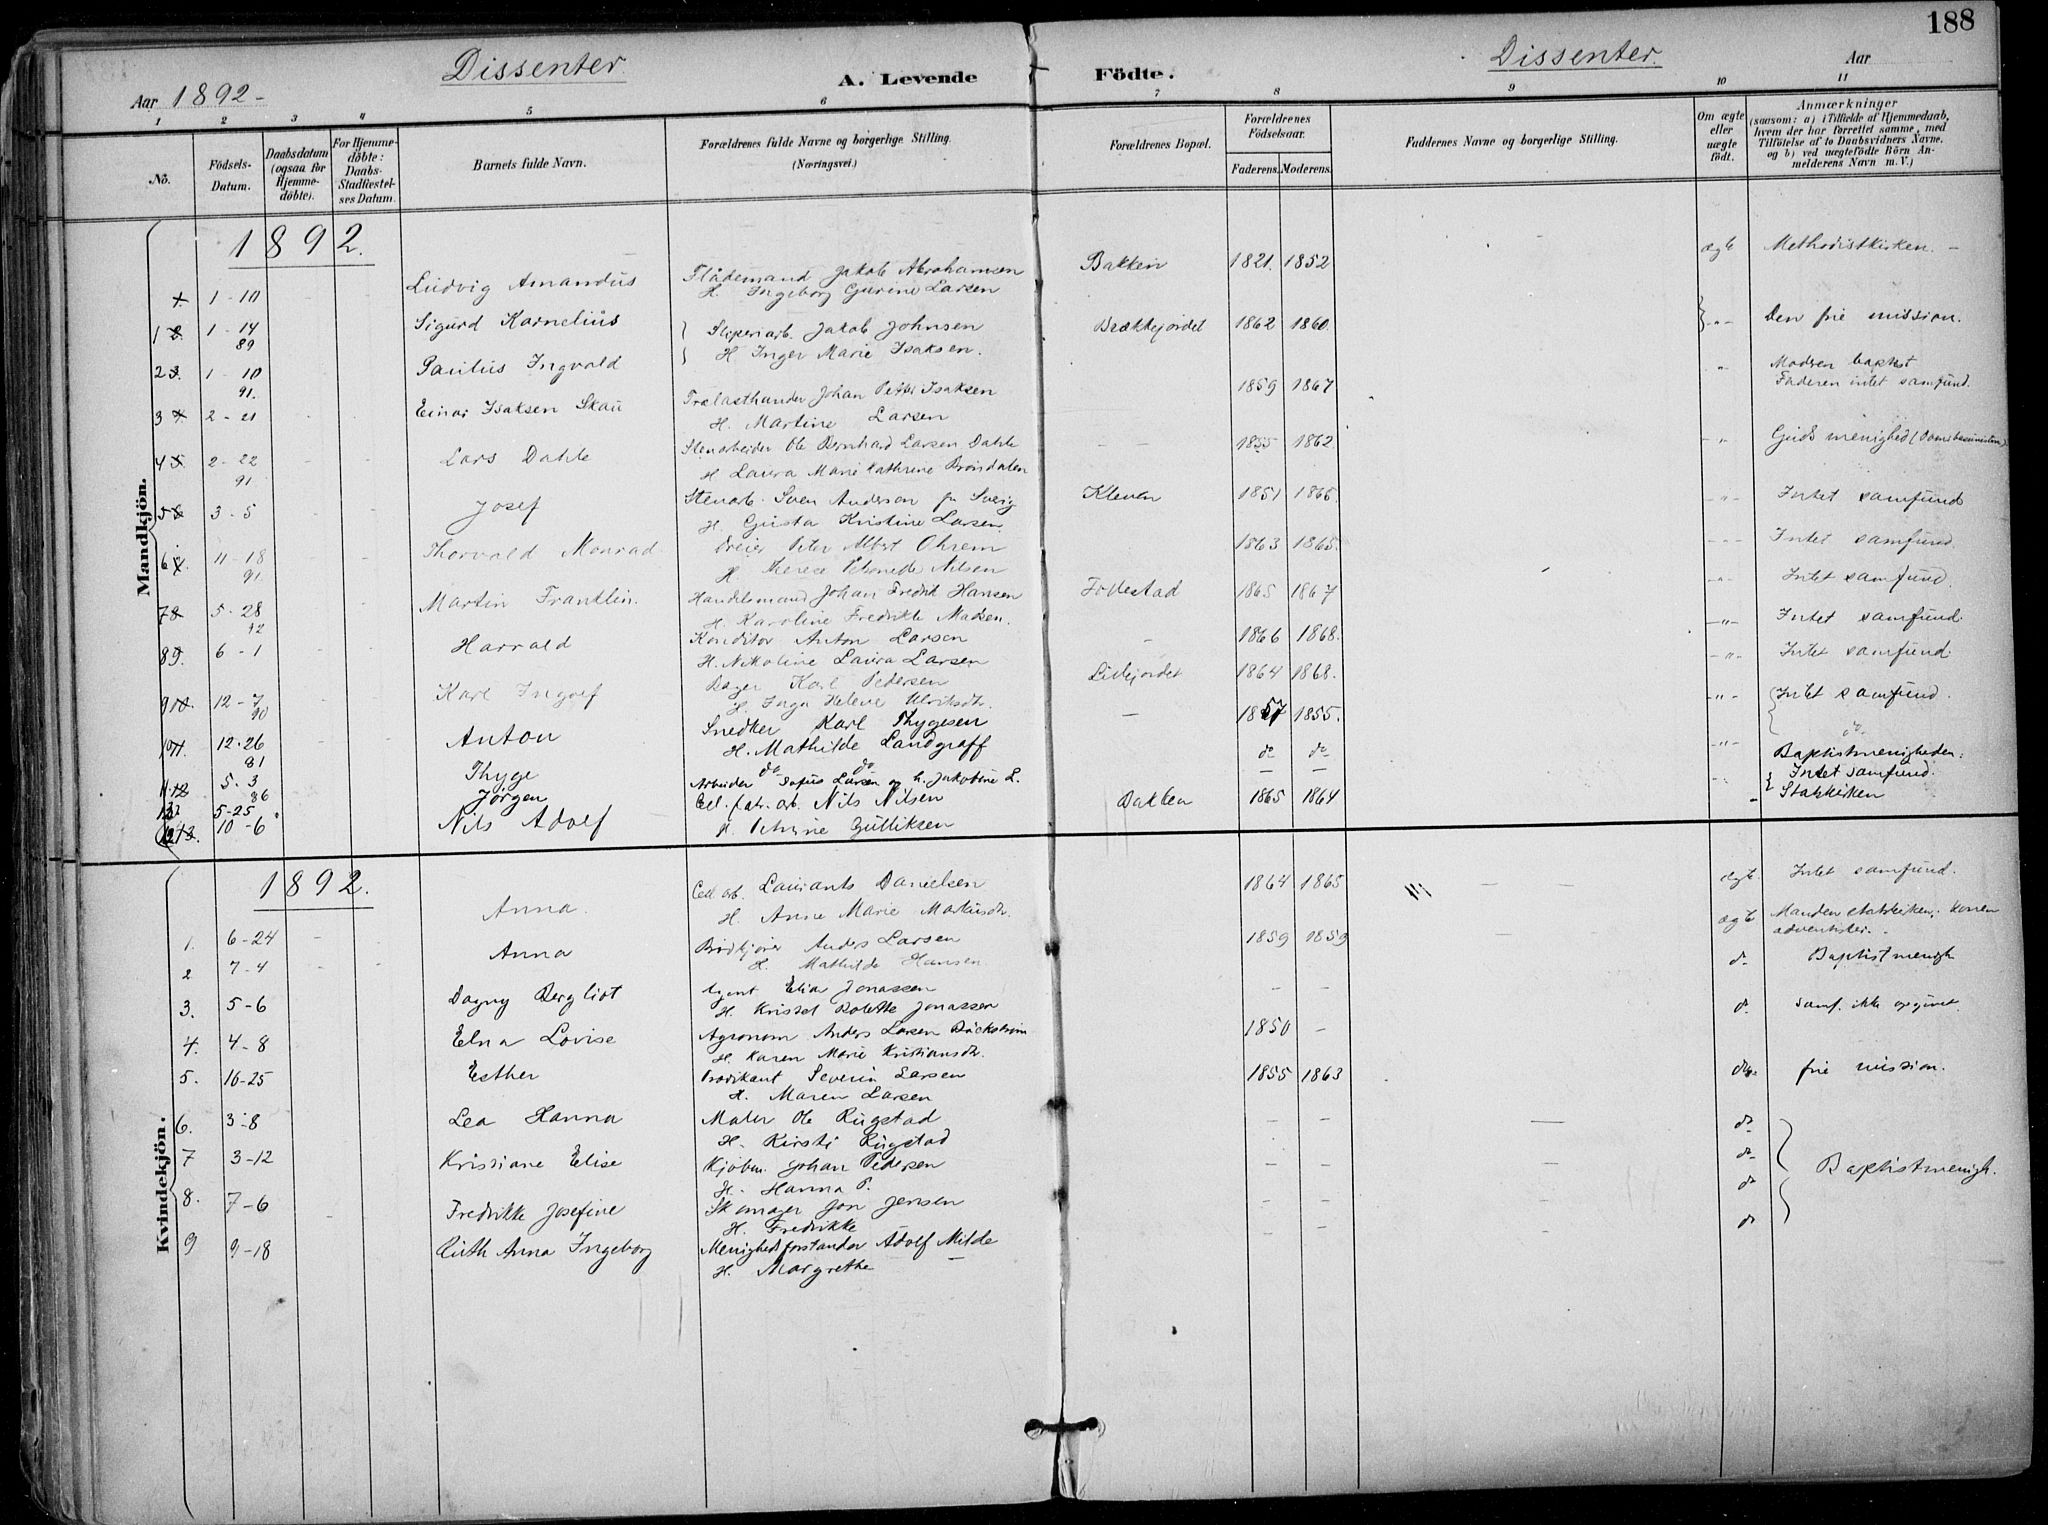 188
Dissenter. A. Levende Födte. Dissenter. Aar
Aar 1892-
1 2 3 4 5 6 7 8 9 10 11
No.
Födsels-Datum.
Daabsdatum (ogsaa for Hjemmedöbte).
For Hjemmedöbte: Daabs-Stadfæstelses Datum.
Barnets fulde Navn.
Forældrenes fulde Navne og borgerlige Stilling.
(Næringsvei.)
Forældrenes Bopæl.
Forældrenes Födselsaar.
Faderens. Moderens.
Faddernes Navne og borgerlige Stilling.
Om ægte eller uægte födt.
Anmærkninger
(saasom: a) i Tilfælde af Hjemmedaab, hvem der har forrettet samme, med Tilföielse af to Daabsvidners Navne, og b) ved uægtefödte Börn Anmelderens Navn m. V.)
Mandkjön.
1892.
1-10 Ludvig Amandus Flådemand Jakob Abrahamsen Bakken 1821. 1852 ægte Methodistkirken. -
H. Ingeborg Gurine Larsen
1 1-14 89 Sigurd Kornelius Sliperiarb. Jakob Johnsen Brækkejordet 1862 1860. -"- Den frie mission.
H Inger Marie Isaksen.
2 1-10 91. Paulus Ingvald
3 2-21 Einar Isaksen Skau Trælasthandler Johan Petter Isaksen 1859 1867 " Modren baptist
H. Martine Larsen Faderen intet samfund.
4 2-22 91 Lars Dahle Stenarbeider Ole Bernhard Larsen Dahle - - 1855 1862 -"- Guds menighed
H Laura Marie Kathrine
5 3-5 Josef Stenarb. Sven Anderson fr Sverig Kleven 1851 1866. -"- Intet samfund
H. Gusta Kristine Larsen
6 11-18 91. Thorvald Monrad Dreier Peter Albert Ohrem 1863 1865. -"- Intet samfund.
H Nilsen
7 5-28 92 Martin Frantlin. Handelsmand Johan Fredrik Hansen 1865 1867 -"- Intet samfund.
H. Karoline Fredrikke Madsen.
8 6-1 Harrald Konditor Anton Larsen - 1866 1868. -"- Intet samfund.
H. Nikoline Laura Larsen
9 12-7 90 Karl Ingolf Bager Karl Pedersen Liejordet 1864 1868. -"- Intet samfund.
H. Inga Helene Ulriksdtr.
10 12-26 81 Anton Snedker Karl Thygesen - 1857 1855. -"- Intet samfund.
H. Mathilde Landgraff
11 5-3 86 Thyge do do do do -"- do
12 5-25 Jörgen Arbeider Sofus Larsen og h. Jakobine L. - - Baptistmenigheden.
13. 10-6 Nils Adolf Cel. fabr. arb. Nils Nilsen Bakken 1865 1864 Intet samfund.
H. Petrine Gulliksen Statskirken
Kvindekjön.
1892.
1. 6-24 Anna. Cell arb. Laurants Danielsen 1864 1865 ægte Intet samfund.
H. Anne Marie Markusdtr.
2 7-4 Anna Brödkjörer Anders Larsen 1859 1859 ægte Manden statskirken. Konen adventister.
H. Mathilde Hansen
3. 5-6 Dagny Bergliot Agent Elia Jonassen - - do Baptistmenigh
H. Kristel Bolette Jonassen
4. 4-8 Elna Lovise Agronom Anders Larsen Bäckström 1850 - do samf. ikke opgivet.
H. Karen Marie Kristiansdtr.
5. 16-25 Esther Prædikant Severin Larsen 1855 1863 do frie mission.
H. Maren Larsen
6. 3-8 Lea Hanna Maler Ole Rugstad - - do
H. Kirsti Rugstad
7 3-12 Kristiane Elise Kjöbm. Johan Pedersen - - do Baptistmenigh.
H. Hanna P.
8. 7-6 Fredrikke Josefine Skomager Jon Jensen - - do
H. Fredrikke
9 9-18 Ruth Anna Ingeborg Menighedsforstander Adolf Milde - - do
H. Margrethe